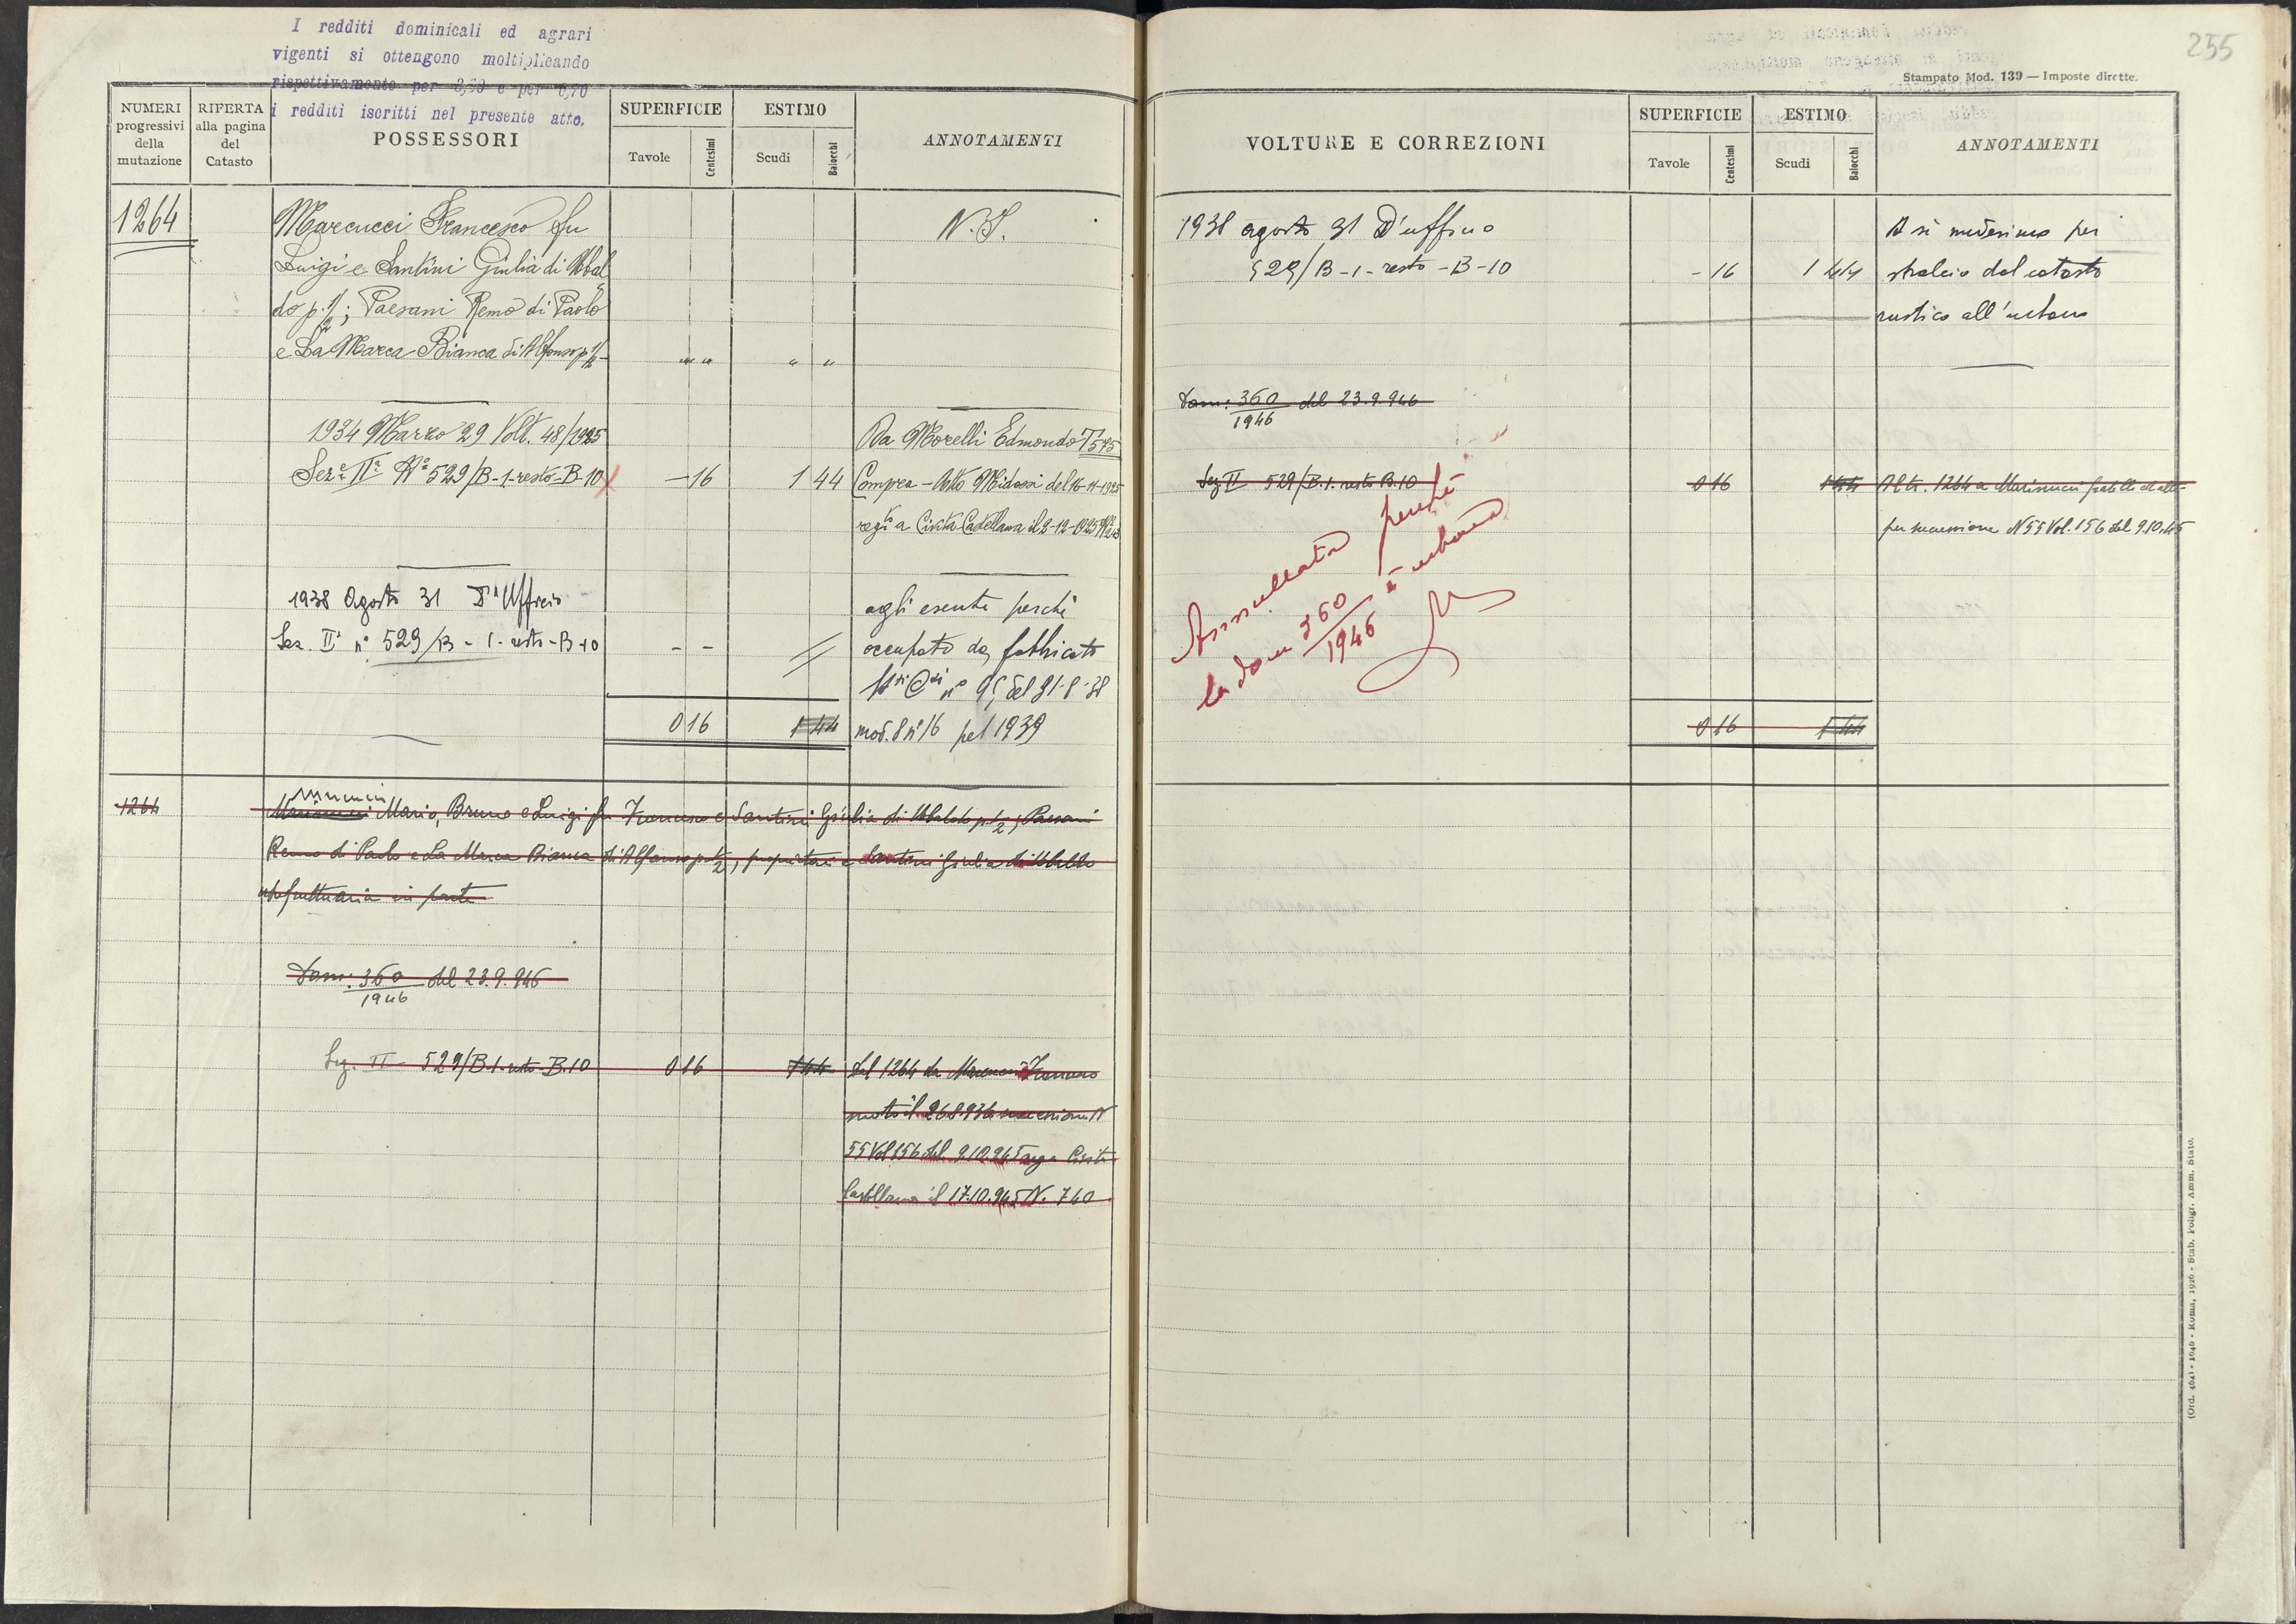 I redditi dominicali ed agrari
vigenti si ottengono moltiplicando
rispettivamente per e per
i redditi iscritti nel presente atto.
NUMERI progressivi della mutazione
RIFERTA alla pagina del Catasto
POSSESSORI
SUPERFICIE
Tavole Centesimi
ESTIMO
Scudi Baiocchi
ANNOTAMENTI
1264
Marcucci Francesco fu N.I.
Luigi e Santini Giulia di Ubal
do p. 1/2; Paesani Remo di Paolo
e La Marca Bianca di Alfonso p 1/2 " " " "
1934 Marzo 29 Volt. 48/1925 Da Morelli Edmondo T 575
Sez.e IIa No 529/B-1-resto-B-10 - 16 1 44 Compra - Atto Midossi del 16-11-1925
regto a Civita Castellana il 2-12-1925
1938 Agosto 31 D'Ufficio agli esenti perchè
Sez. IIa no 529/B-1-resto-B-10 - - occupato da fabbricato
no del 31-8-38
0 16 1 44 mod. 8 no 16 pel 1939
1264
Mario, Bruno e Luigi fu Francesco e Santini Giulia di Ubaldo p. 1/2; Paesani
Remo di Paolo e La Marca Bianca di Alfonso p 1/2, proprietari e Santini Giulia di Ubaldo
usufruttuaria in parte
Dom: 360/1946 del 23.9.946
Sez. II 529/B.1.resto-B.10 0 16 1 44 Dal 1264 da
morto il successione N
55 Vol 156 del 9.10.945 reg a Civita
Castellana il 17.10.945 N. 760
255
Stampato Mod. 139 — Imposte dirette.
VOLTURE E CORREZIONI
SUPERFICIE
Tavole Centesimi
ESTIMO
Scudi Baiocchi
ANNOTAMENTI
1938 agosto 31 D'ufficio A sè medesimo per
529/B-1-resto-B-10 - 16 1 44 stralcio dal catasto
rustico all'urbano
Dom: 360/1946 del 23.9.946
Sez II 529/B.1.resto B.10 0 16 1 44 Al tr. 1264 a Marinucci fratelli ed altri
per successione N 55 Vol. 156 del 9.10.45
Annullata perchè
la dom 360/1946 è urbana
0 16 1 44
(Ord. 4641 - 1040 - Roma, 1926 - Stab. Poligr. Amm. Stato.